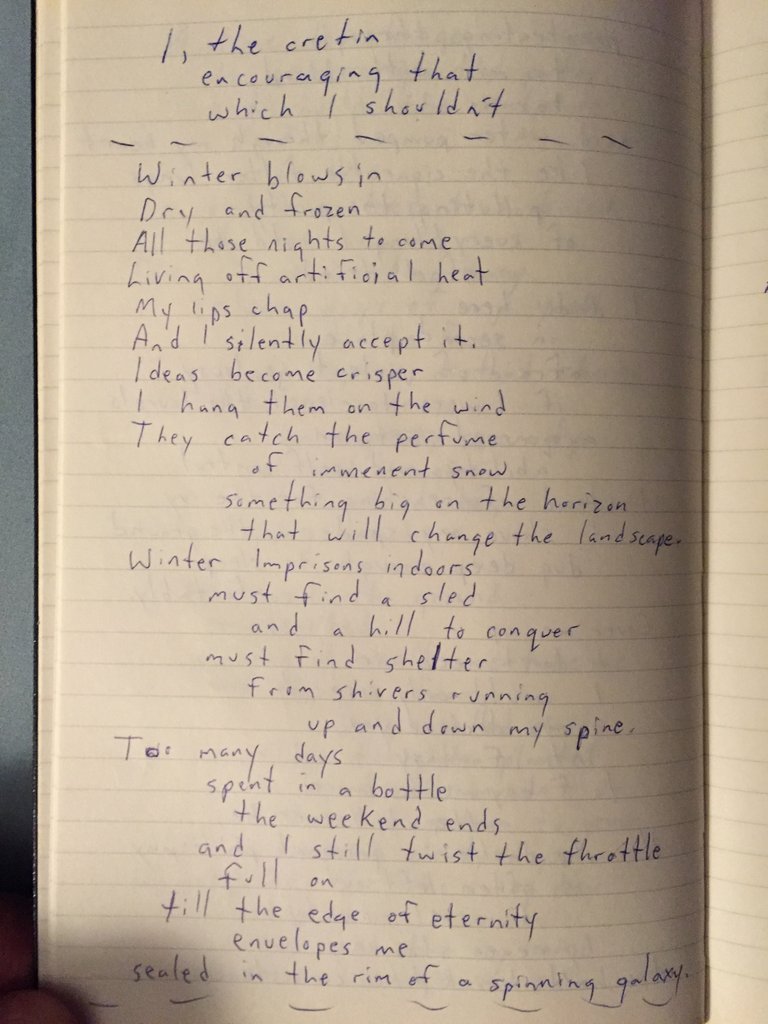 I, the cretin
encouraging that
which I shouldn't
Winter blows in
Dry and frozen
All those nights to come
Living off artificial heat
My lips chap
And I silently accept it.
Ideas become crisper
I hang them on the wind
They catch the perfume
of immenent snow
something big on the horizon
that will change the landscape.
Winter Imprisons indoors
must find a sled
and a hill to conquer
must find shelter
from shivers running
up and down my spine.
Too many days
spent in a bottle
the weekend ends
and I still twist the throttle
full on
till the edge of eternity
envelopes me
sealed in the rim of a spinning galaxy.